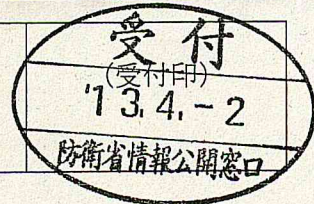 受付
(受付印)
'13.4.-2
防衛省情報公開窓口